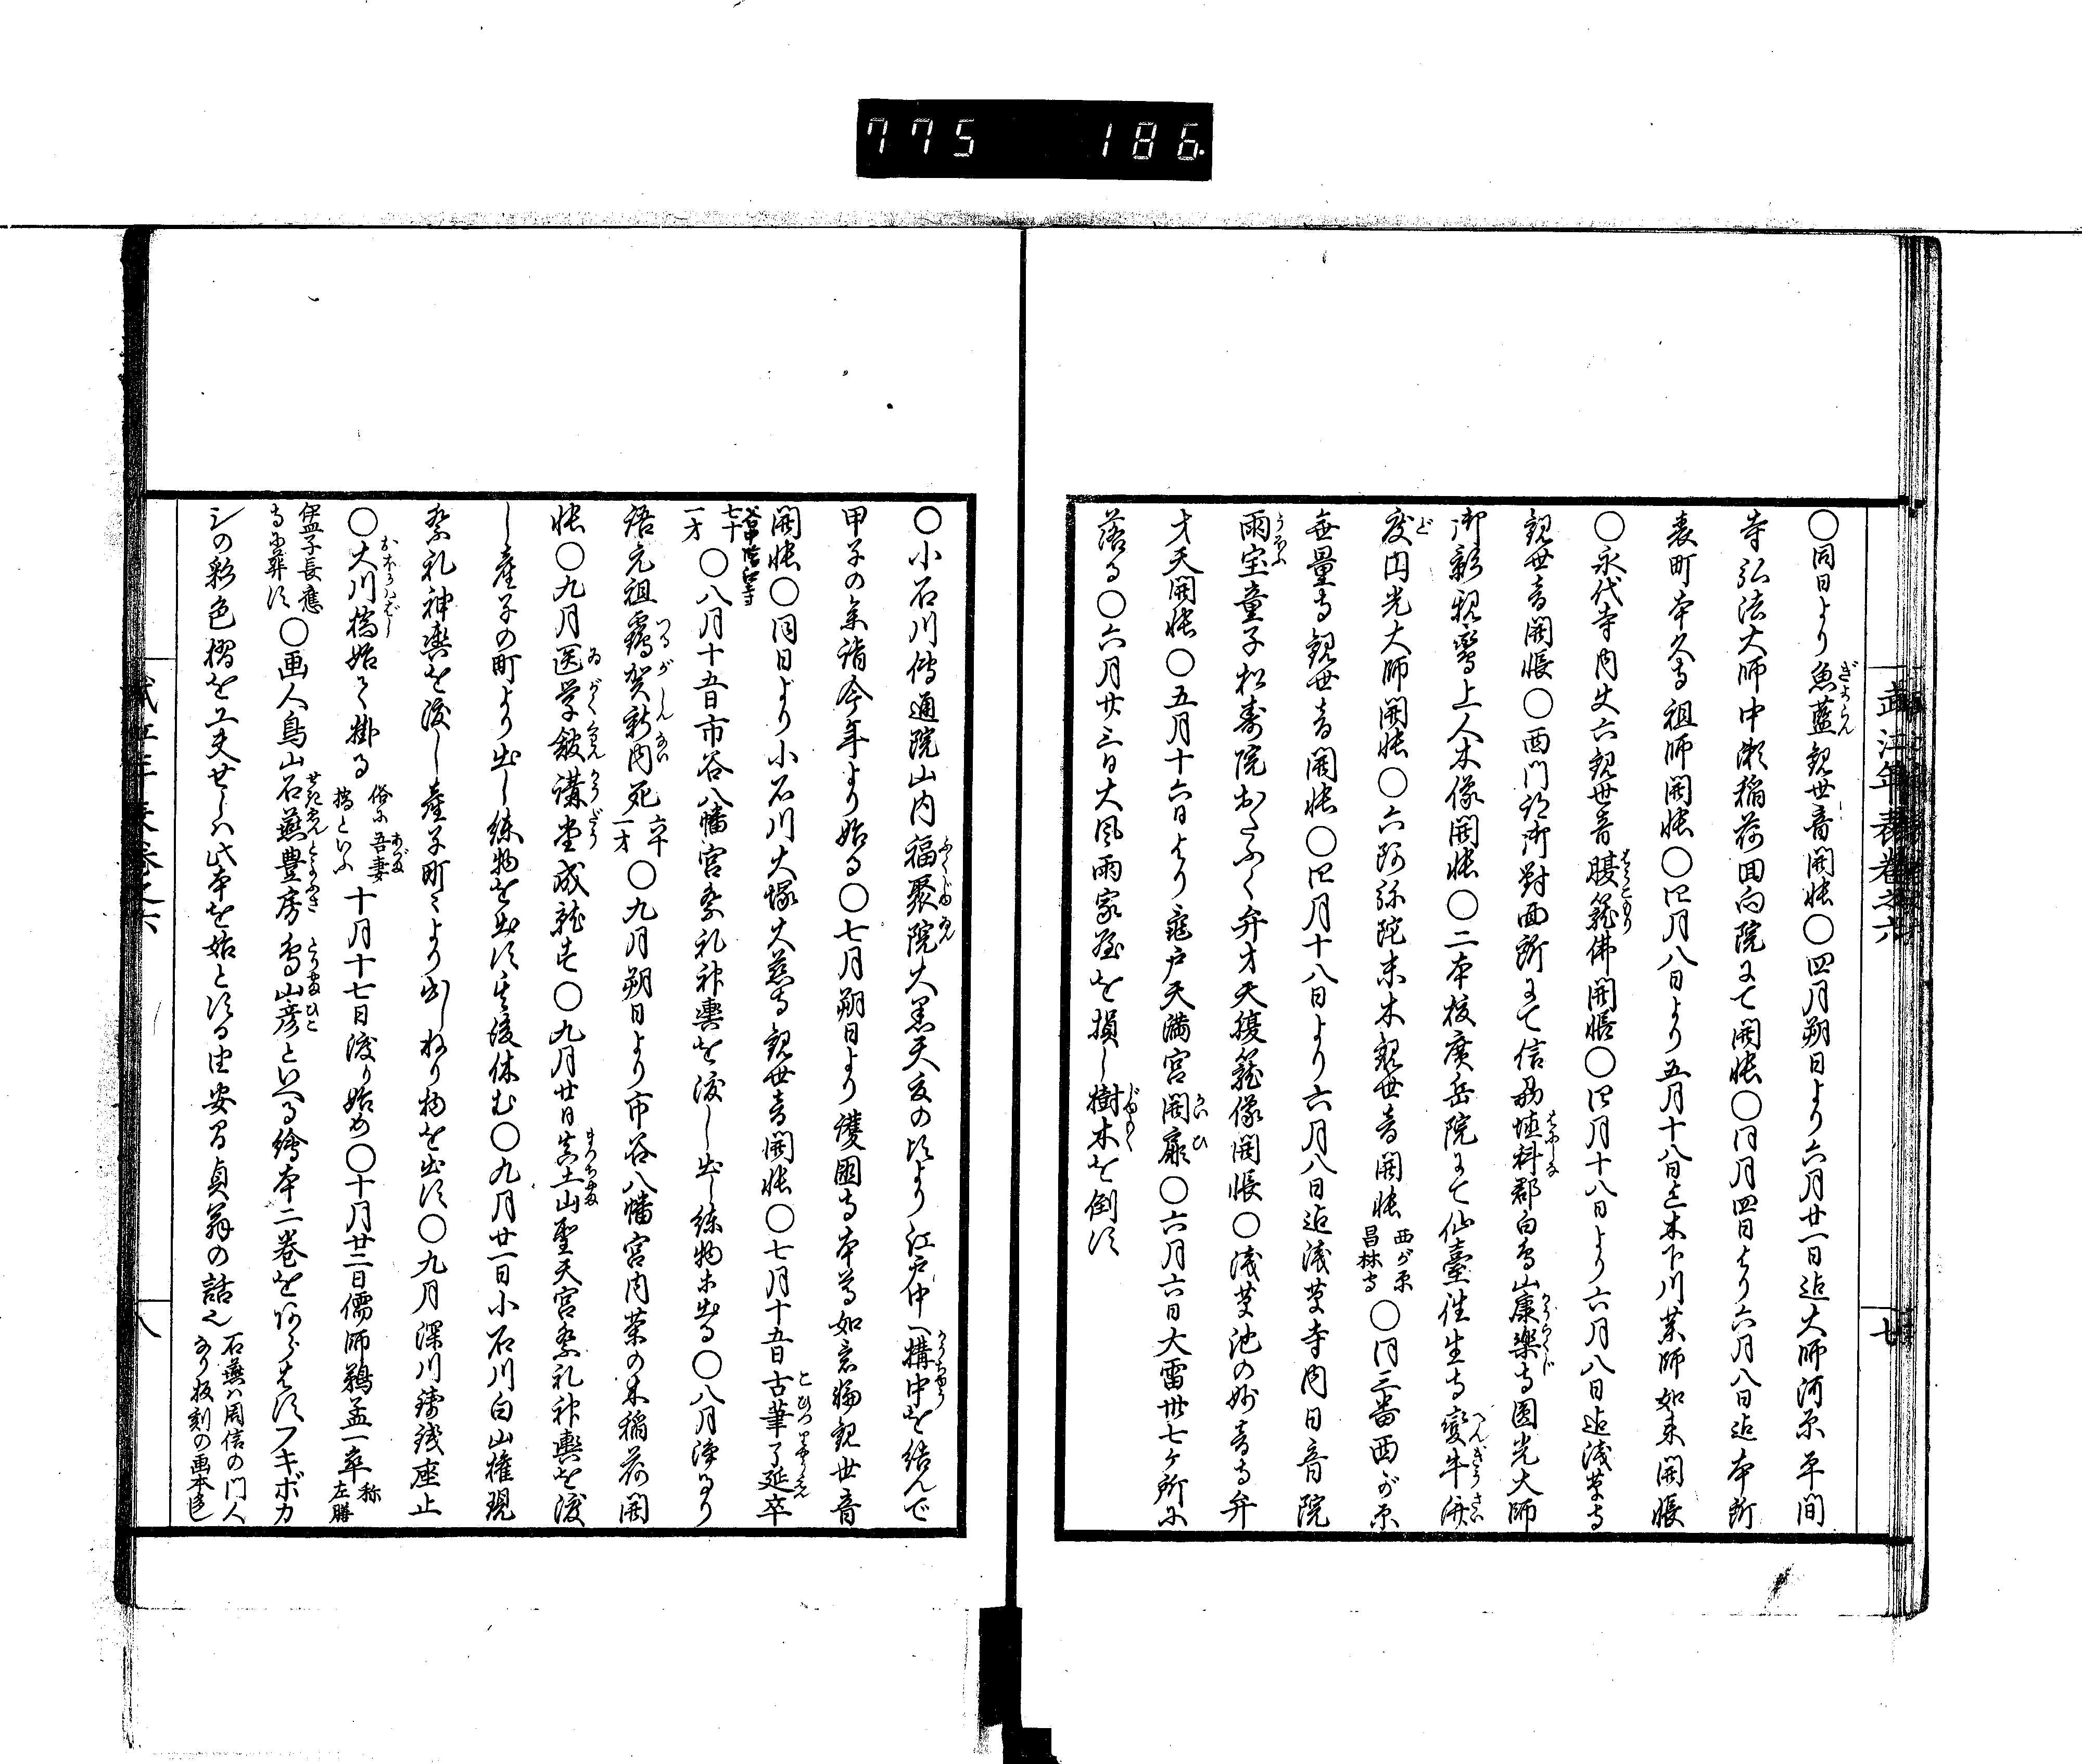 775 186
武江年表巻之六
七
〇同日より魚藍観世音開帳〇四月朔日より六月廿一日迄大師河原平間
寺弘法大師中瀬稲荷回向院にて開帳〇同月四日より六月八日迄本所
表町本久寺祖師開帳〇四月八日より五月十八日迄木下川薬師如来開帳
〇永代寺内丈六観世音腹籠佛開帳〇四月十八日より六月八日迄浅草寺
観世音開帳〇西門跡御対面所にて信州埴科郡白鳥山康楽寺圓光大師
御影親鸞上人木像開帳〇二本榎廣岳院にて仙臺往生寺変牛済
度円光大師開帳〇六阿弥陀末木観世音開帳西が原昌林寺〇同三番西が原
無量寺観世音開帳〇四月十八日より六月八日迄浅草寺内日音院
雨宝童子松寿院おたふく弁才天腹籠像開帳〇浅草池の妙音寺弁
才天開帳〇五月十六日より亀戸天満宮開扉〇六月六日大雷卅七ケ所に
落る〇六月廿三日大風雨家屋を損し樹木を倒す
〇小石川傳通院山内福聚院大黒天夜の頃より江戸中へ構中を結んで
甲子の参詣今年より始る〇七月朔日より護國寺本尊如意輪観世音
開帳〇同日より小石川大塚大慈寺観世音開帳〇七月十五日古筆了延卒
七十一才〇八月十五日市谷八幡宮祭礼神輿を渡し出し練物等出る〇八月浄るり
語元祖鶴賀新内死六十一才〇九月朔日より市谷八幡宮内茶の木稲荷開
帳〇九月医学館講堂成就す〇九月廿日真土山聖天宮祭礼神輿を渡
し産子の町より出し練物を出す其後休む〇九月廿一日小石川白山権現
祭礼神輿を渡し産子町〻より出しねり物を出す〇九月深川鋳銭座止
〇大川橋始て掛る俗に吾妻橋といふ十月十七日渡り始め〇十月廿二日儒師鵜孟一卒称左膳
盟子長應寺に葬す〇画人鳥山石燕豊房鳥山彦といへる繪本二巻をあらはすフキボカ
シの彩色摺を工夫せしは此本を始とする由安〻貞翁の話也石燕は周信の門人なり板刻の画本多し
武江年表巻之六
八